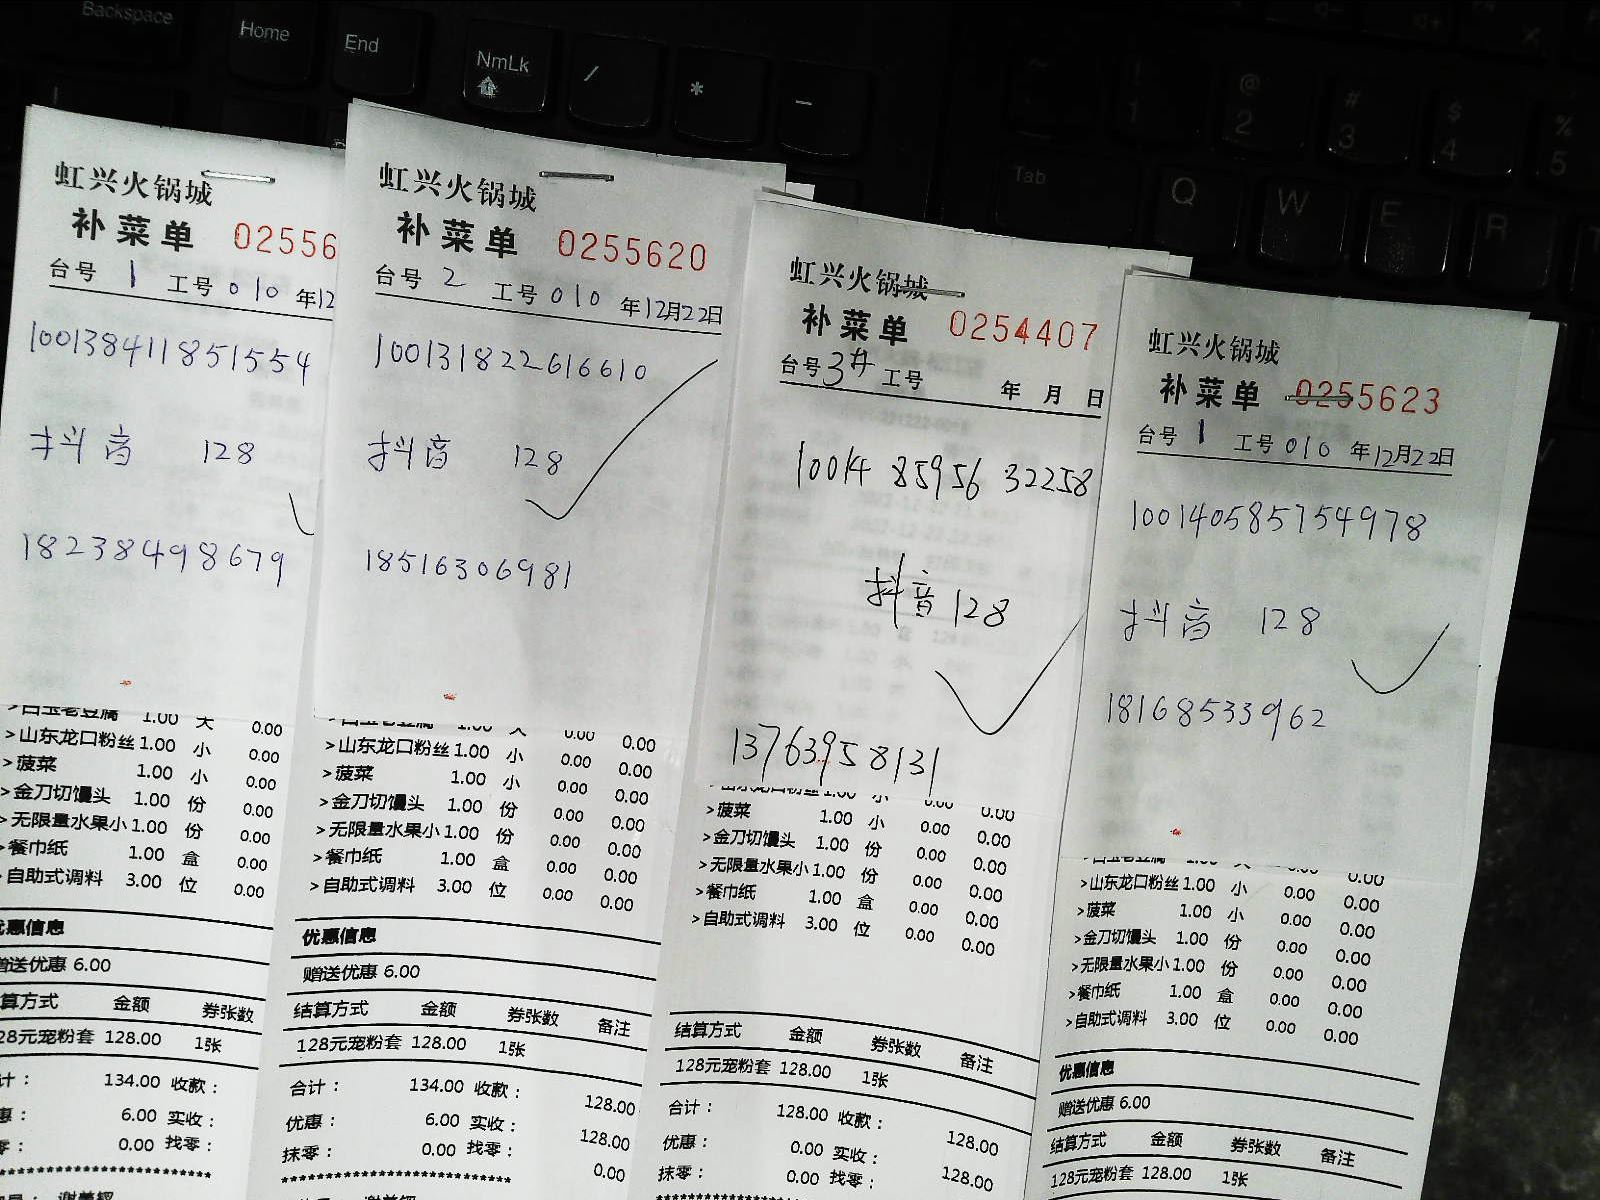 Backspace
Home
End
NmLk
/
*
-
Tab
Q
W
E
R
@
2
#
3
$
4
%
5
1
虹兴火锅城
补菜单 02556
台号 1 工号 010 年12
100138411851554
抖音 128
18238498679
>白玉老豆腐 1.00 大 0.00
>山东龙口粉丝 1.00 小 0.00
>菠菜 1.00 小 0.00
>金刀切馒头 1.00 份 0.00
>无限量水果小 1.00 份 0.00
>餐巾纸 1.00 盒 0.00
>自助式调料 3.00 位 0.00
优惠信息
赠送优惠 6.00
算方式 金额 券张数
28元宠粉套 128.00 1张
计： 134.00 收款：
惠： 6.00 实收：
零： 0.00 找零：
********************
虹兴火锅城
补菜单 0255620
台号 2 工号 010 年12月22日
100131822616610
抖音 128
18516306981
>白玉老豆腐 1.00 大 0.00 0.00
>山东龙口粉丝 1.00 小 0.00 0.00
>菠菜 1.00 小 0.00 0.00
>金刀切馒头 1.00 份 0.00 0.00
>无限量水果小 1.00 份 0.00 0.00
>餐巾纸 1.00 盒 0.00 0.00
>自助式调料 3.00 位 0.00 0.00
优惠信息
赠送优惠 6.00
结算方式 金额 券张数 备注
128元宠粉套 128.00 1张
合计： 134.00 收款： 128.00
优惠： 6.00 实收： 128.00
抹零： 0.00 找零： 0.00
********************
虹兴火锅城
补菜单 0254407
台号 3# 工号 年 月 日
10014 85956 32258
抖音 128
13763958131
>山东龙口粉丝 1.00 小 0.00 0.00
>菠菜 1.00 小 0.00 0.00
>金刀切馒头 1.00 份 0.00 0.00
>无限量水果小 1.00 份 0.00 0.00
>餐巾纸 1.00 盒 0.00 0.00
>自助式调料 3.00 位 0.00 0.00
结算方式 金额 券张数 备注
128元宠粉套 128.00 1张
合计： 128.00 收款： 128.00
优惠： 0.00 实收： 128.00
抹零： 0.00 找零： 0.00
********************
虹兴火锅城
补菜单 0255623
台号 1 工号 010 年12月22日
1001405857554978
抖音 128
18168533962
>白玉老豆腐 1.00 大 0.00
>山东龙口粉丝 1.00 小 0.00 0.00
>菠菜 1.00 小 0.00 0.00
>金刀切馒头 1.00 份 0.00 0.00
>无限量水果小 1.00 份 0.00 0.00
>餐巾纸 1.00 盒 0.00 0.00
>自助式调料 3.00 位 0.00 0.00
优惠信息
赠送优惠 6.00
结算方式 金额 券张数 备注
128元宠粉套 128.00 1张